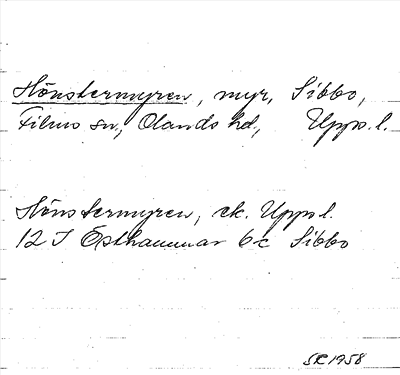 Hönstermyren, myr, Sibbo,
Films sn, Olands hd, Upps. l.
Hönstermyren, ek. Upps l.
12 I Östhammar 6 c Sibbo
SR 1958